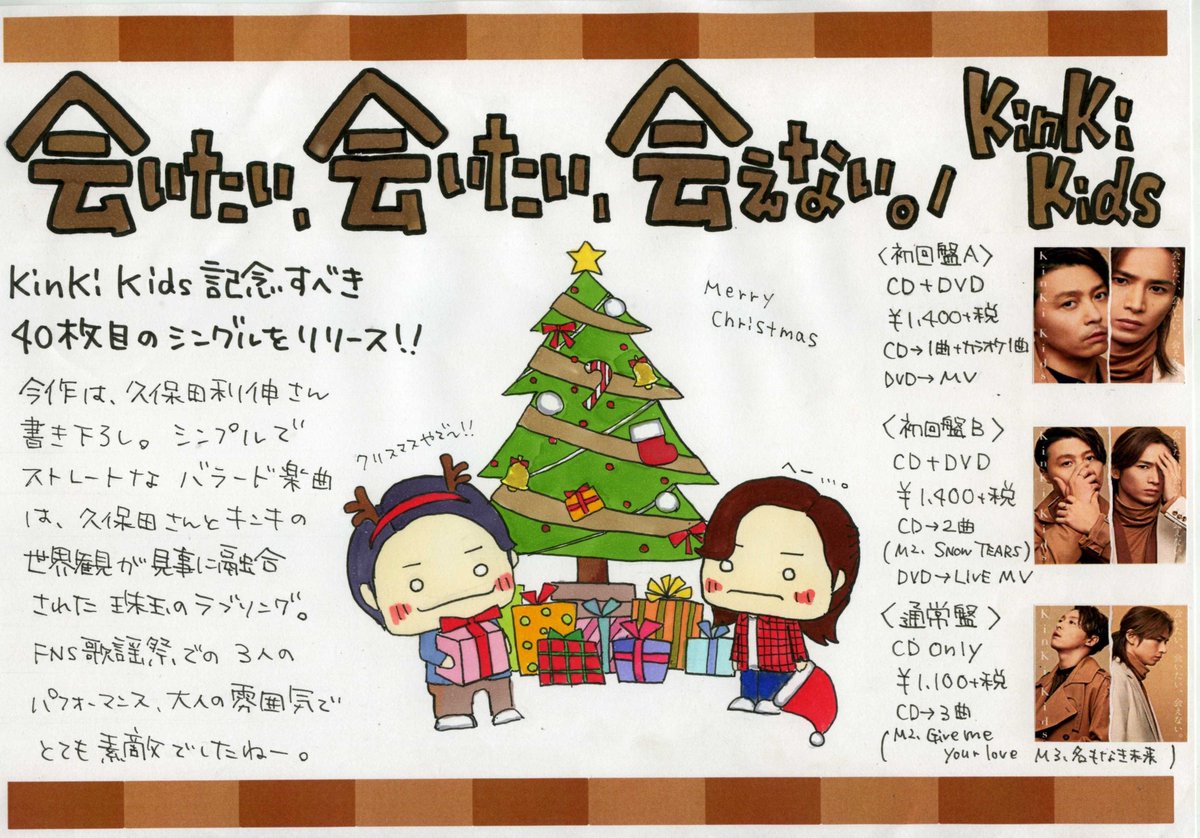 会いたい、会いたい、会えない。
KinKi
Kids
KinKi Kids 記念すべき
40枚目のシングルをリリース!!
今作は、久保田利伸さん
書き下ろし。シンプルで
ストレートな バラード楽曲
は、久保田さんとキンキの
世界観が見事に融合
された 珠玉のラブソング。
FNS歌謡祭での 3人の
パフォーマンス、大人の雰囲気で
とても素敵でしたねー。
Merry
Christmas
クリスマスやで〜!!
へー…。
〈初回盤A〉
CD+DVD
¥1,400+税
CD→1曲+カラオケ1曲
DVD→MV
〈初回盤B〉
CD+DVD
¥1,400+税
CD→2曲
(M2. SNOW TEARS)
DVD→LIVE MV
〈通常盤〉
CD Only
¥1,100+税
CD→3曲
(M2. Give me
your love M3. 名もなき未来)
KinKi Kids
会いたい、会いたい、会えない。